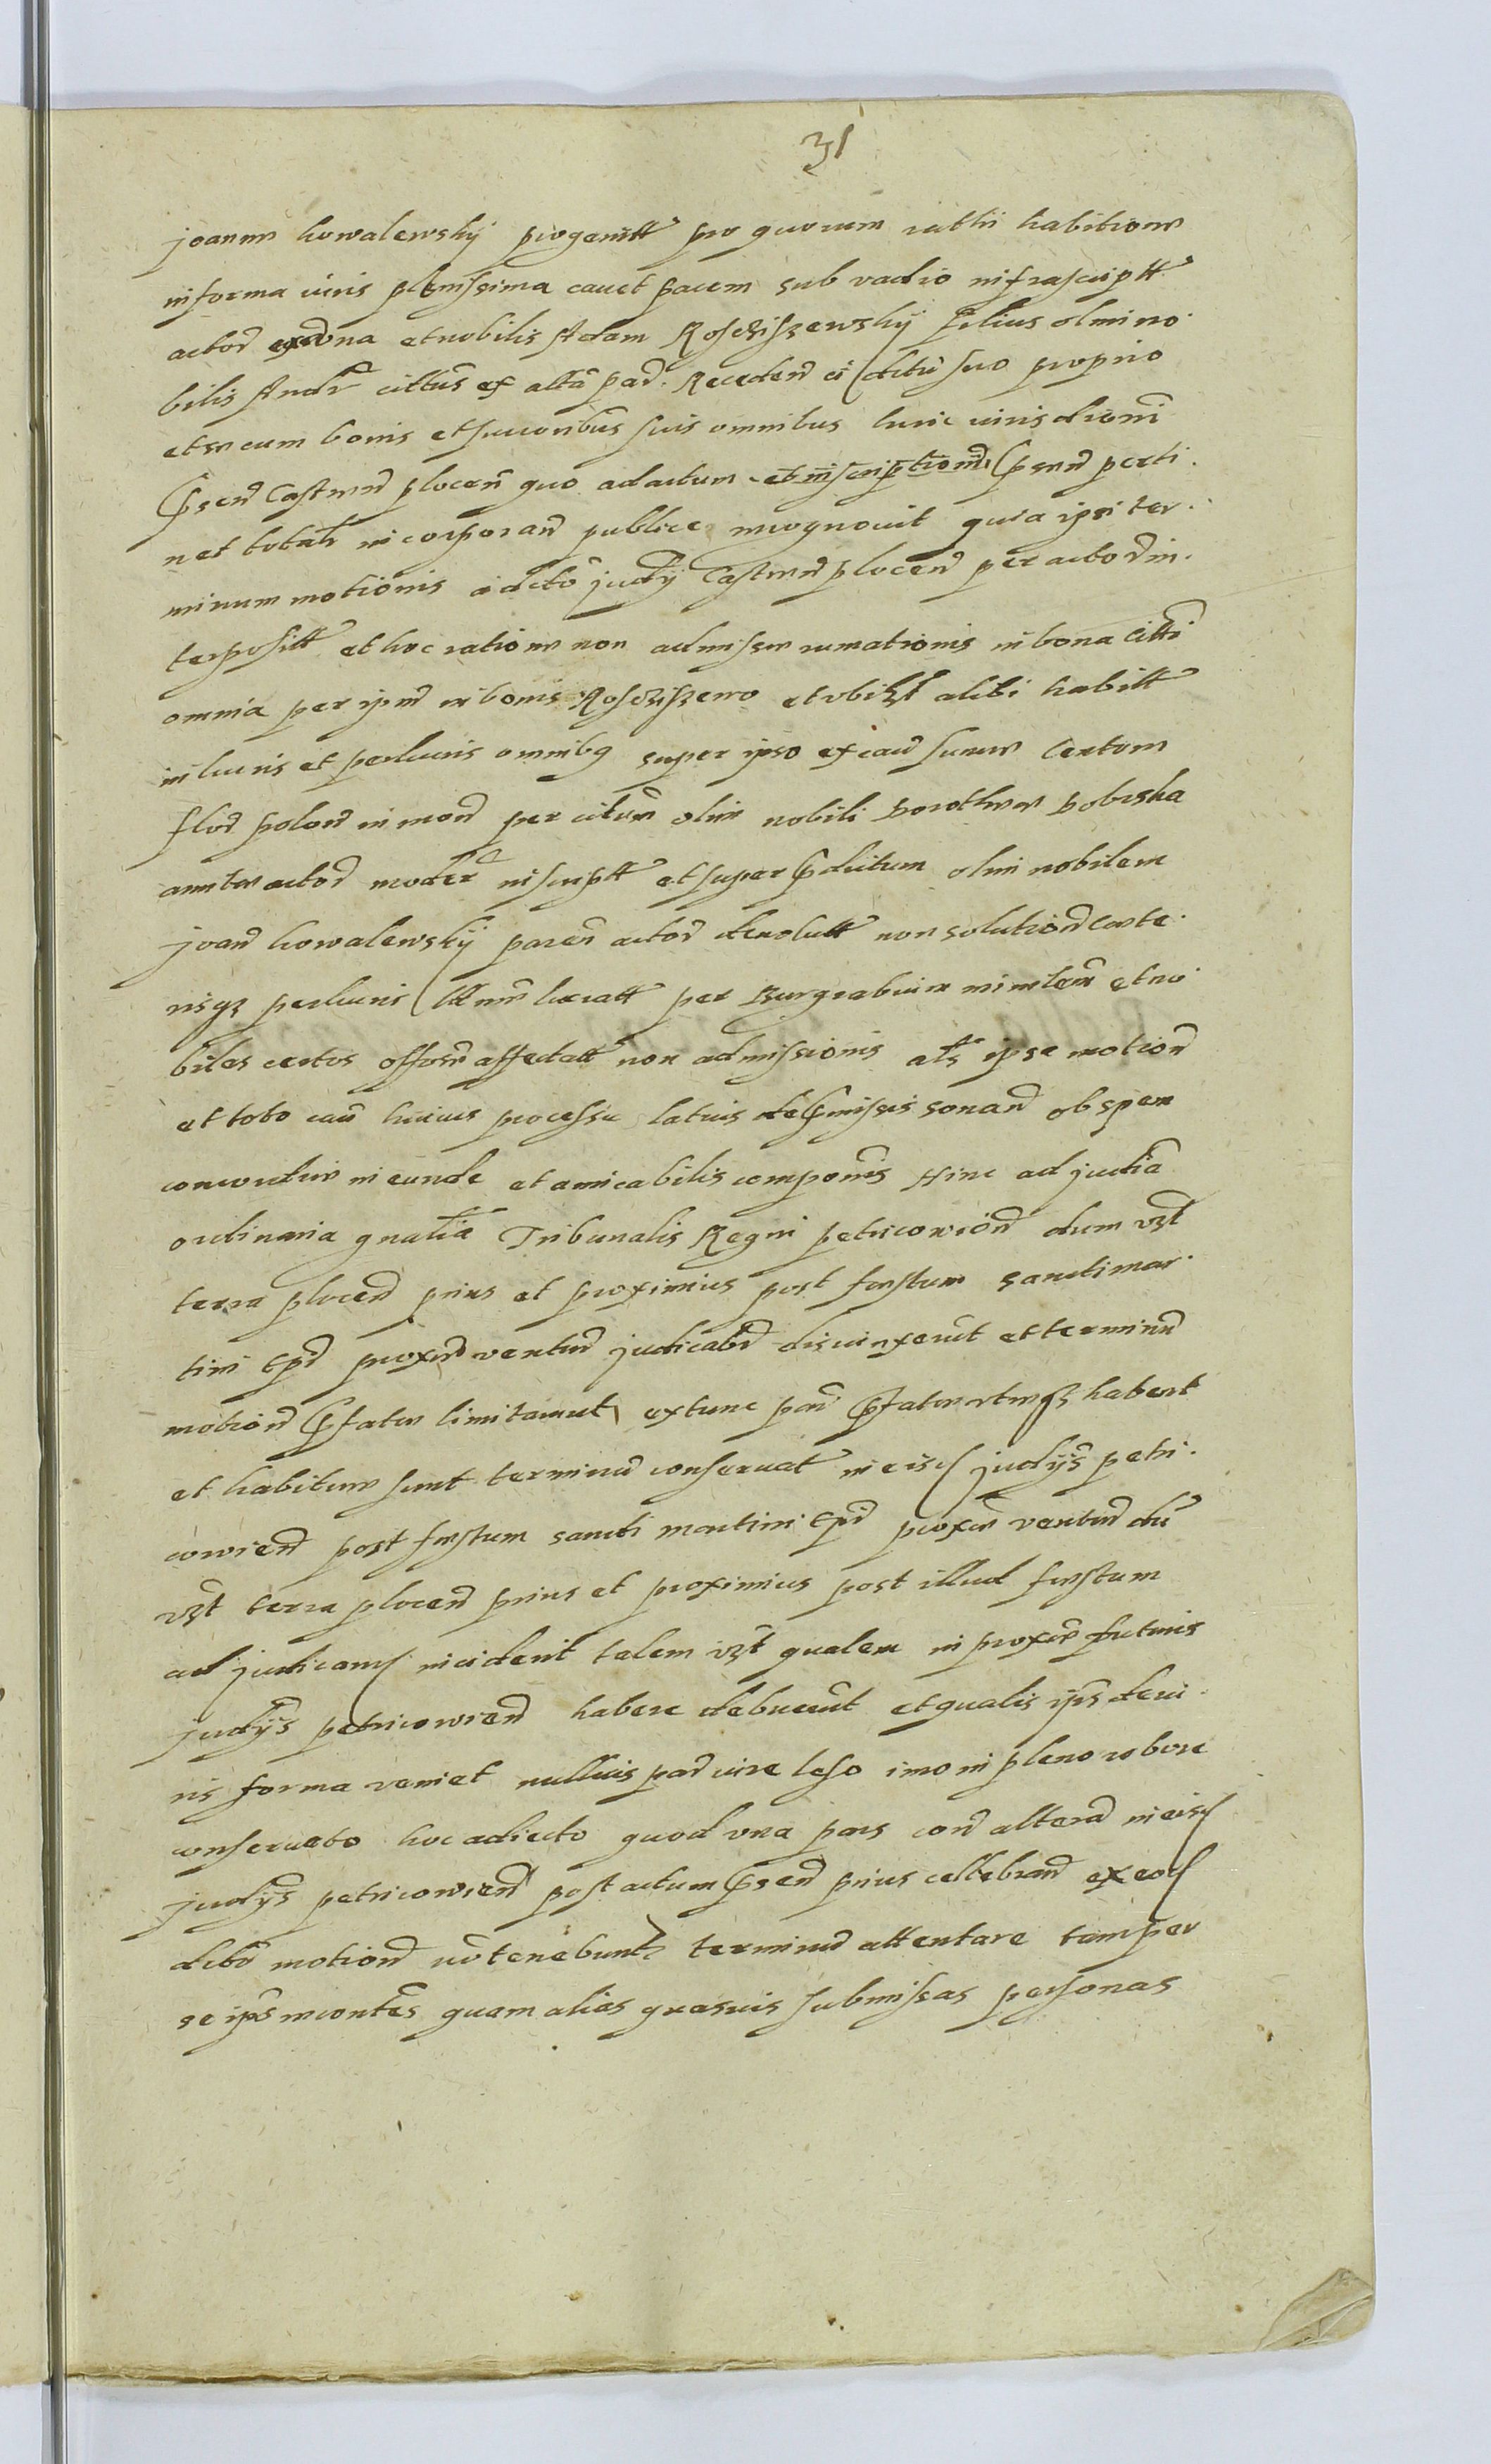 31
joannis kowalewskij progenitt pro quorum rathi habitione
in forma iuris plenissima cavet pacem sub vadio infrascriptt
actor ex una et nobilis Adam Rosciszewskij filius olim no
bilis Andr citts ex alta par. Recedend a dctu suo proprio
et se cum bonis et succoribus suis omnibus huic iurisdioni
psend Castren plocen quo ad actum et inscriptiond psend perti
net totalr incorporand publice recognovit quia ipsi ter
minum motionis a dcto judij Castren plocend per actod in
terpositt et hoc ratione non admisse rumationis in bona citti
omnia per ipm in bonis Rosciszewo et vbiqt alibi habitt
in lucris et perlucris omnibq super ipso ex cau sume Centom
flod polond in mond per citum olim nobili Dorotheae Dobrska
amitae actod moder inscriptt et super pdcitum olim nobilem
joand kowalewskij paren actod devolutt non solutiond cete
risqz perlucris lucratt per Burgrabium ministem et no
biles certos offose affectatt non admissionis als ipse motiond
et toto cau huius processu latius depmissis sonand ob spem
concordiae in eunde et amicabilis componis Hinc ad judia
ordinaria gnalia Tribunalis Regni petricowiond dum vzt
terra plocend prius et proximius post festum sancti mar
tini Epi proxime venturd judicabr discinxerut et terminu
motiond pfatae limitavut extunc par pfatae habent
et habiture sunt terminu conservat in eisd judijs petri
cowiend post festum sancti martini Epi proxe venturd du
vzt terra plocend prius et proximius post illud festum
ad judicand inciderit talem vzt qualem in proxe futuris
judijs petricowiend habere debuerut et qualis ips de iu
ris forma veniet nullius par iure leso imo in pleno robore
conservato hoc adiecto quod vna pars con alterd in eisd
judijs petricowiend post actum psend prius cellebrand ex eod
dcto motiond no tenebunt terminu attentare tam per
se ips incontes quam alias quasvis submissas personas